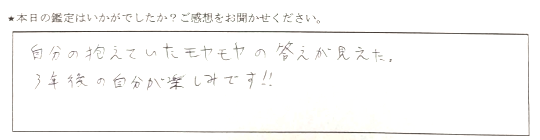 ★本日の鑑定はいかがでしたか？ご感想をお聞かせください。
自分の抱えていたモヤモヤの答えが見えた。
3年後の自分が楽しみです!!